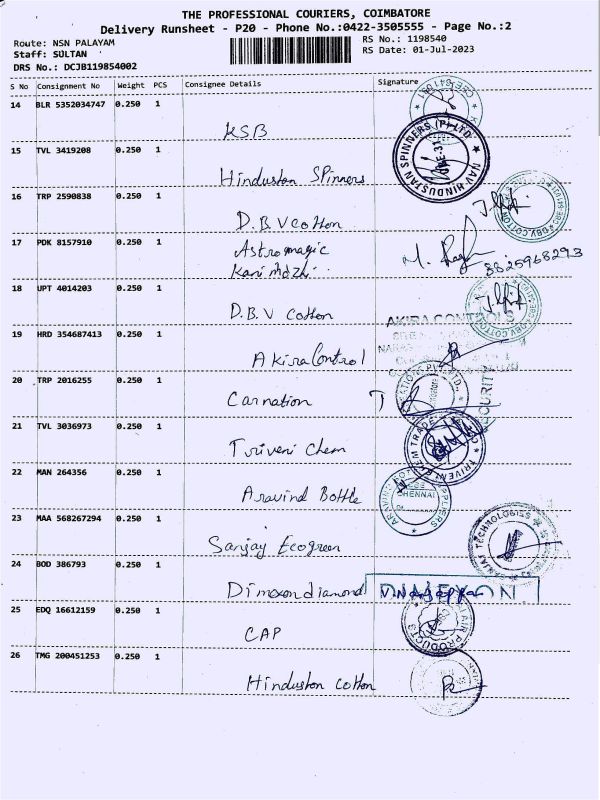 THE PROFESSIONAL COURIERS, COIMBATORE
Delivery Runsheet - P20 - Phone No.:0422-3505555 - Page No.:2
Route: NSN PALAYAM
RS No.: 1198540
Staff: SULTAN
RS Date: 01-Jul-2023
DRS No.: DCJB119854002
S No Consignment No Weight PCS Consignee Details Signature
14 BLR 5352034747 0.250 1
KSB
15 TVL 3419208 0.250 1
Hindustan Spinners
NAV HINDUSTAN SPINNERS (P) LTD
16 TRP 2590838 0.250 1
D.B.V Cotton
17 PDK 8157910 0.250 1
Astromagic
Kanimozhi
8825968293
18 UPT 4014203 0.250 1
D.B.V Cotton
19 HRD 354687413 0.250 1
AKIRA CONTROLS
Akira Control
20 TRP 2016255 0.250 1
SECURITY
Carnation
21 TVL 3036973 0.250 1
Triveni Chem
22 MAN 264356 0.250 1
CHENNAI
Aravind Bottle
23 MAA 568267294 0.250 1
Sanjay Ecogreen
TECHNOLOGIES
24 BOD 386793 0.250 1
Dimexon diamond
25 EDQ 16612159 0.250 1
CAP
AIR PRODUCTS
26 TMG 200451253 0.250 1
Hinduston cotton